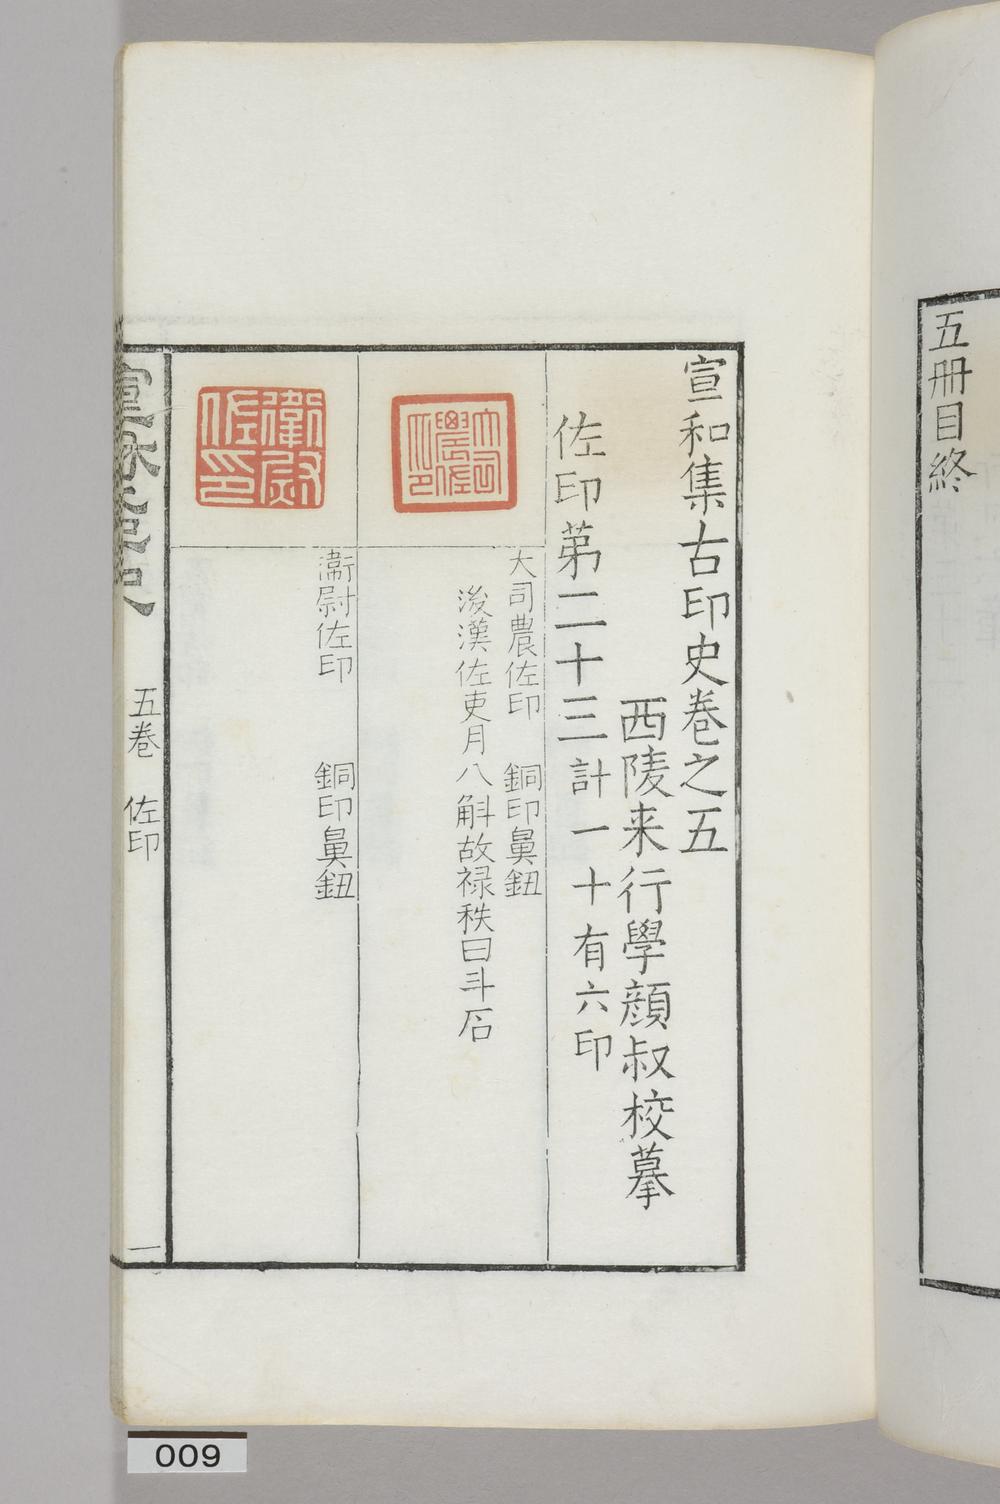 五册目終
宣和集古印史卷之五
西陵来行學顏叔校摹
佐印苐二十三計一十有六印
大司農佐印 銅印鼻鈕
後漢佐吏月八斛故禄秩曰斗石
衞尉佐印 銅印鼻鈕
五卷 佐印
一
大司農佐印
衛尉佐印
009